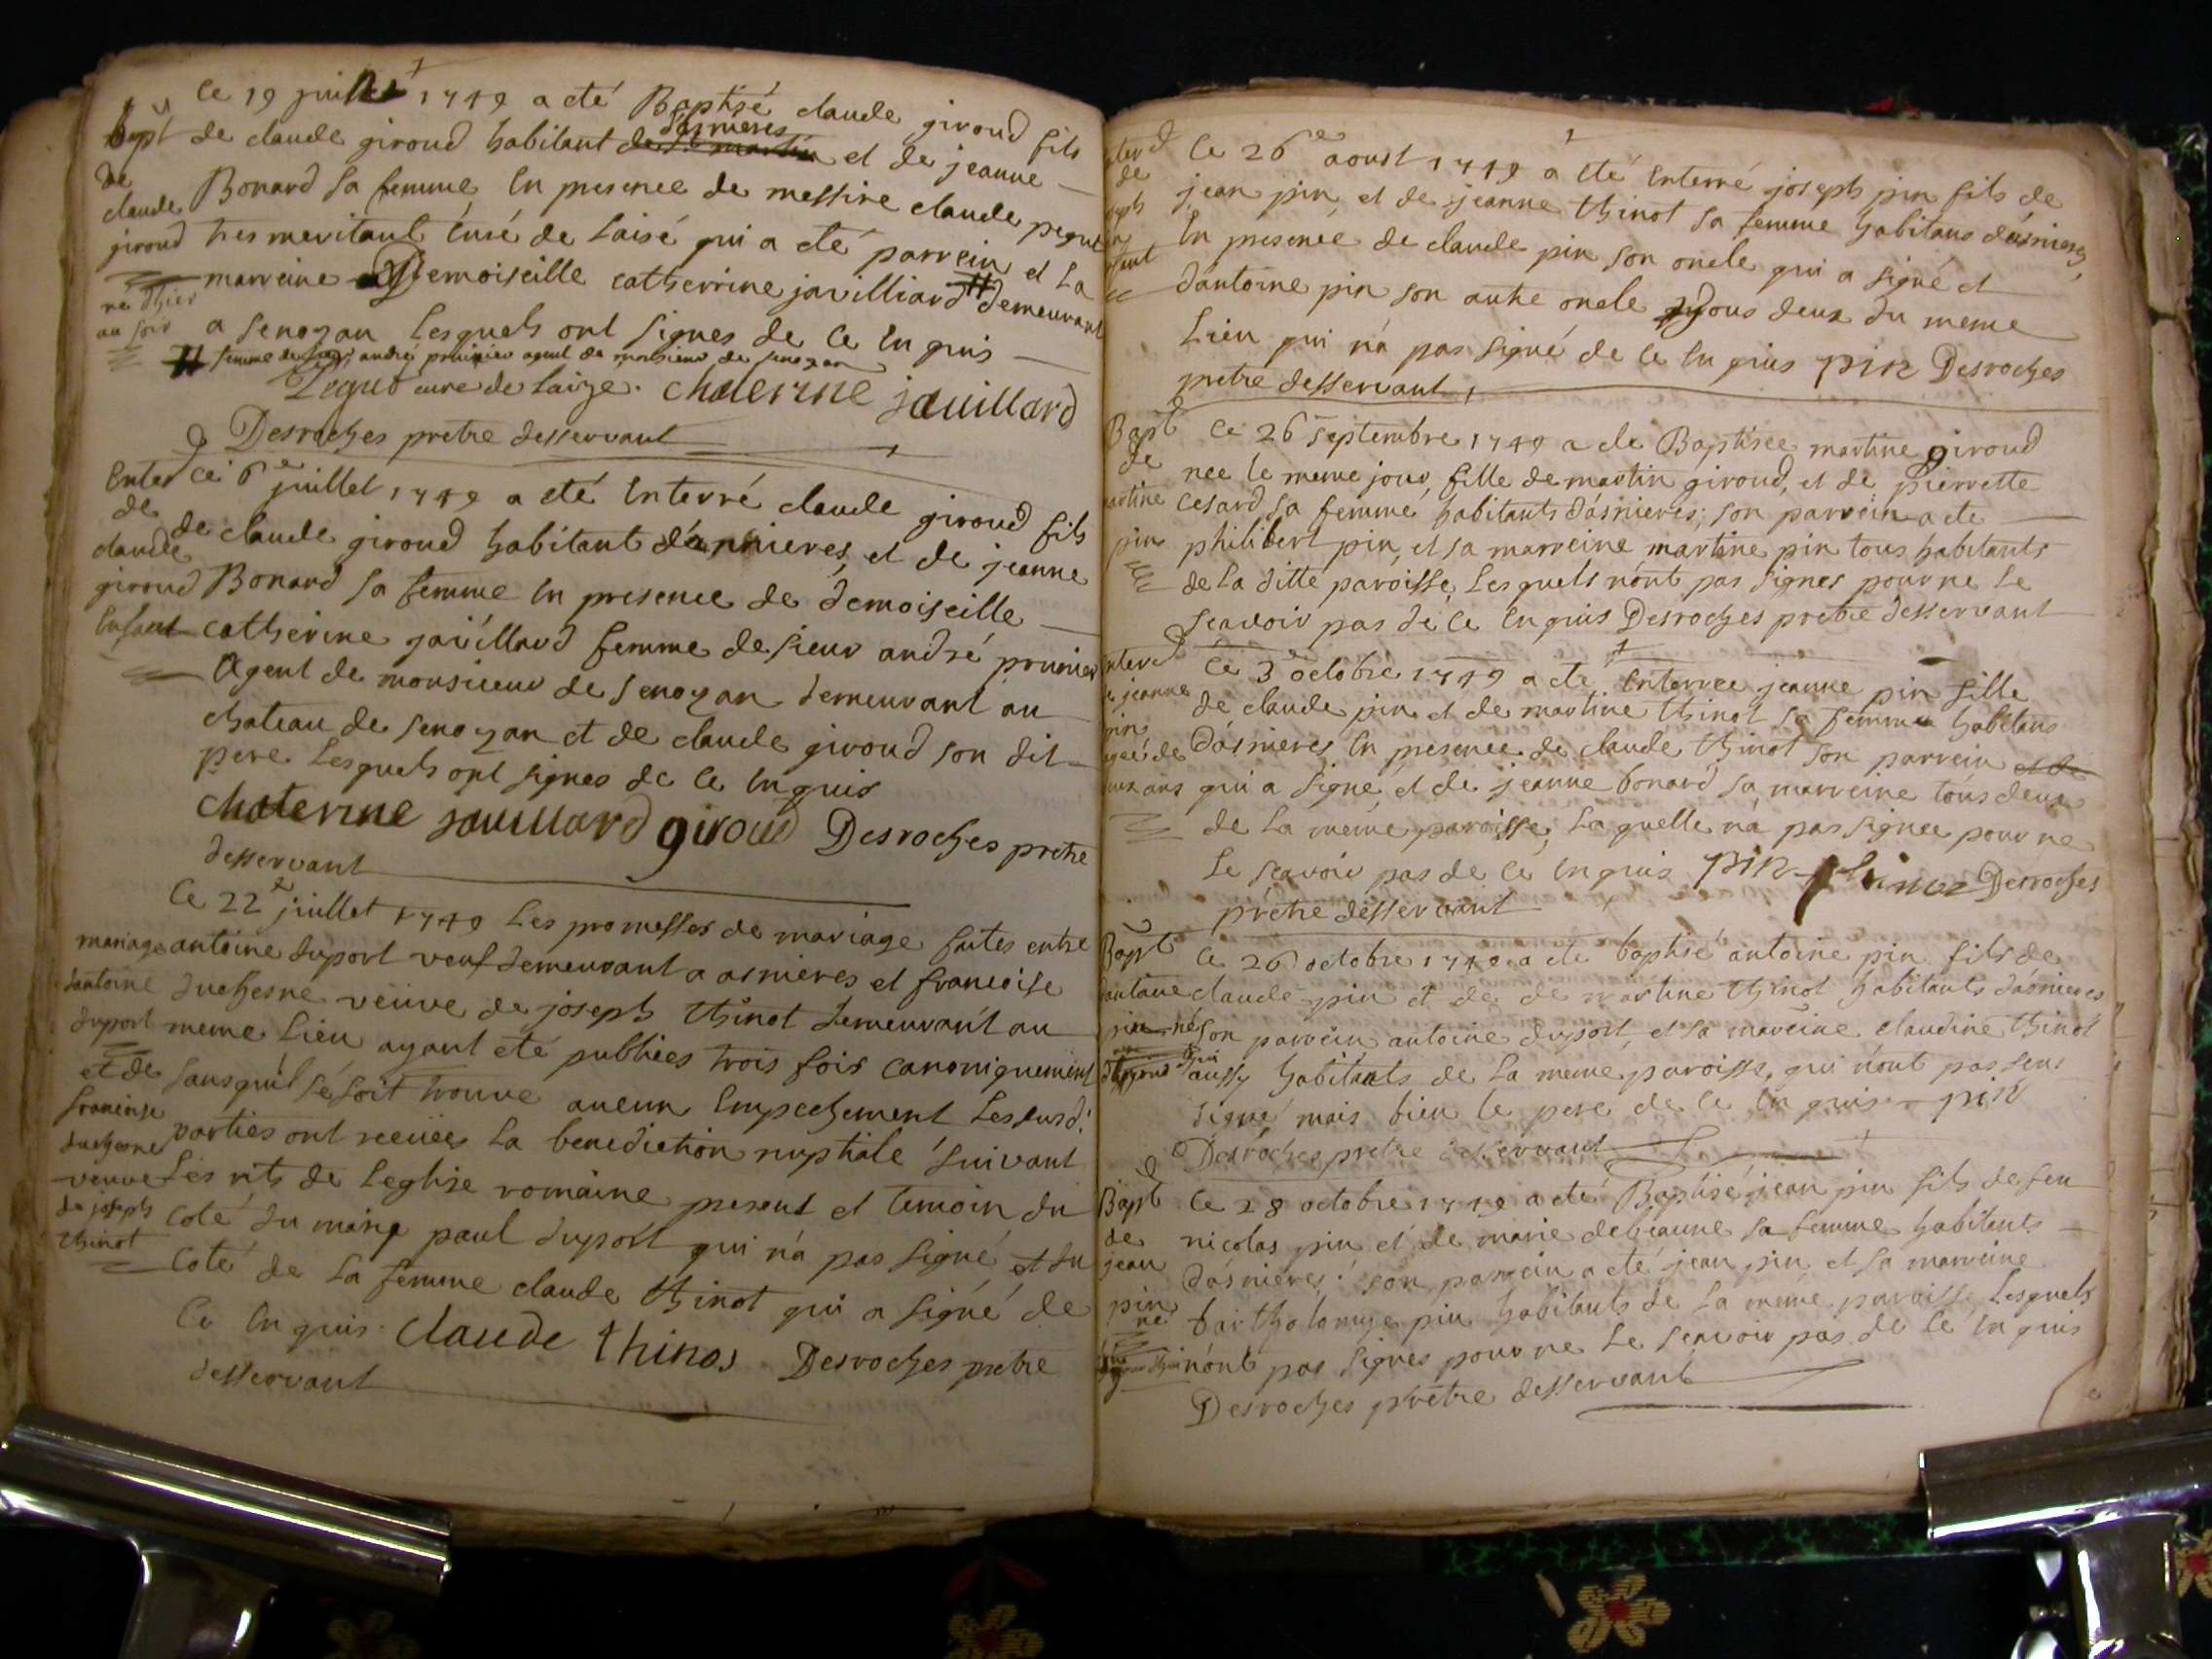 Ce 19 juillet 1749 a eté Baptisé claude giroud fils
de claude giroud habitant d'asnieres et de jeanne
Bonard sa femme, en presence de messire claude pegut
tres meritant Curé de Laisé qui a eté parrein et La
marreine Demoiseille catherrine javilliard # demeurant
a senozan Lesquels ont signes de ce enquis
# femme de sieur andré prunier agent de monsieur de senozan
Pegut curé de Laize. chaterine jauillard
Desroches pretre desservant
Bapt
de
claude
giroud
né d'hier
au soir
Ce 6e juillet 1749 a eté Enterré claude giroud fils
de claude giroud habitant d'asnieres, et de jeanne
Bonard sa femme en presence de demoiseille
catherine javillard femme de sieur andré prunier
Agent de monsieur de senozan demeurant au
chateau de senozan et de claude giroud son dit
pere Lesquels ont signes de ce enquis
chaterine jauillard giroud Desroches pretre
desservant
Enterd
de
claude
giroud
Enfant
Ce 22e juillet 1749 Les promesses de mariage faites entre
antoine duport veuf demeurant a asnieres et francoise
duchesne veuve de joseph thinot demeurant au
meme Lieu ayant eté publiees trois fois canoniquement
sans qu'il se soit trouvé aucun Empechement Les susd.
parties ont receües La benediction nuptiale suivant
Les rits de Leglise romaine present et temoin du
coté du marié paul duport qui n'a pas signé et du
coté de La femme claude thinot qui a signé de
Ce enquis. claude thinos Desroches pretre
desservant
mariage
d'antoine
duport
et de
francoise
duchesne
veuve
de joseph
thinot
Ce 26e aoust 1749 a eté Enterré joseph pin fils de
jean pin, et de jeanne thinot sa femme habitans d'asnieres,
En presence de claude pin son oncle qui a signé et
d'antoine pin son autre oncle tous deux du meme
Lieu qui n'a pas signé de ce enquis pin Desroches
pretre desservant,
de
Ce 26e septembre 1749 a ete Baptisee martine giroud
nee le meme jour, fille de martin giroud, et de pierrette
Cesard, sa femme habitants d'asnieres; son parrein a ete
philibert pin, et sa marreine martine pin tous habitants
de La ditte paroisse, Lesquels n'ont pas signes pour ne Le
scavoir pas de ce enquis Desroches pretre desservant
Bapt
de
martine
pin
Ce 3e octobre 1749 a eté Enterree jeanne pin fille
de claude pin et de martine thinot sa femme habitans
d'asnieres En presence de claude thinot son parrein et de
qui a signé, et de jeanne bonard sa marreine tous deux
de La meme paroisse, Laquelle n'a pas signee pour ne
Le scavoir pas de ce enquis pin thinos Desroches
pretre desservant
Enterd
de jeanne
pin
agée de
ans
Ce 26 octobre 1749 a eté baptisé antoine pin fils de
claude pin et de de martine thinot habitants d'asnieres
son parrein antoine duport, et sa mareine claudine thinot
aussy habitants de La meme paroisse, qui n'ont pas
signé mais bien le pere de ce enquis pin
Desroches pretre desservant
Bapt
d'antoine
pin né
Ce 28 octobre 1749 a eté Baptisé jean pin fils de feu
nicolas pin et de marie debeaune sa femme habitants
d'asnieres: son parrein a eté jean pin et sa marreine
bartholomye pin habitants de La meme paroisse Lesquels
n'ont pas signes pour ne Le scavoir pas de ce enquis
Desroches pretre desservant
Bapt
de
jean
pin
né